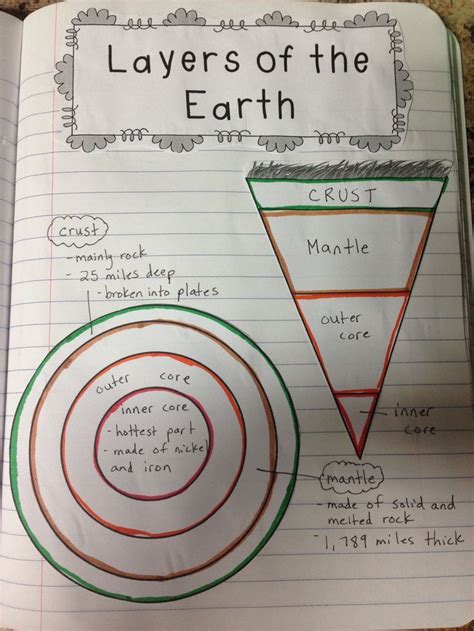 Layers of the
Earth
CRUST
Mantle
outer
core
inner
core
crust
- mainly rock
- 25 miles deep
- broken into plates
outer core
inner core
- hottest part
- made of nickel
and iron
mantle
- made of solid and
melted rock
- 1,789 miles thick